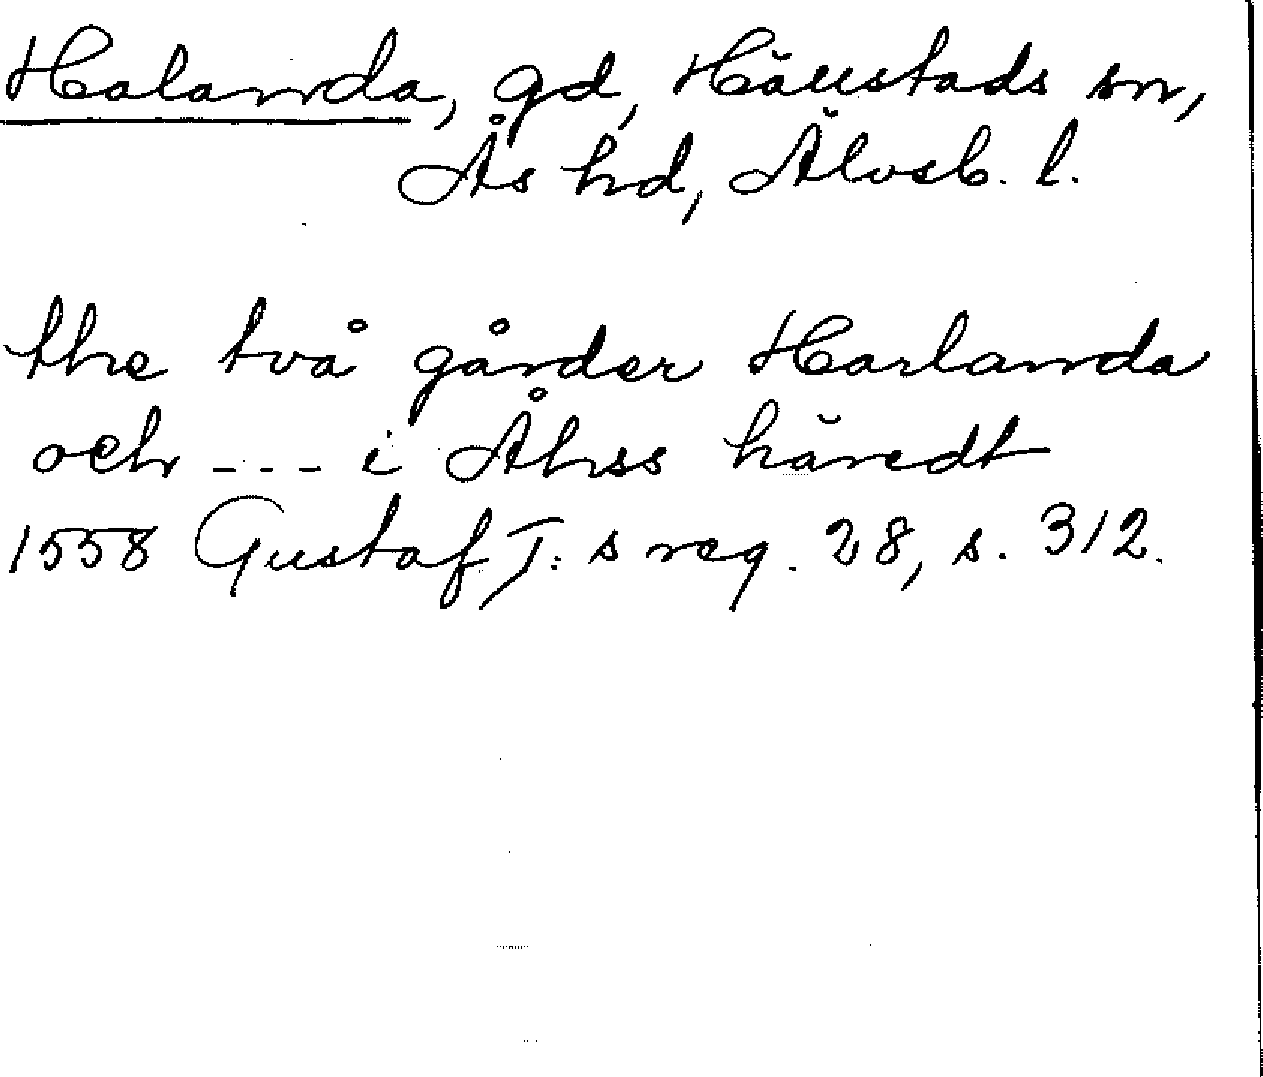 Halanda, gd, Hällstads sn,
Ås hd, Älvsb. l.
the två gårder Harlanda
och --- i Åhss häredt
1558 Gustaf I:s reg. 28, s. 312.